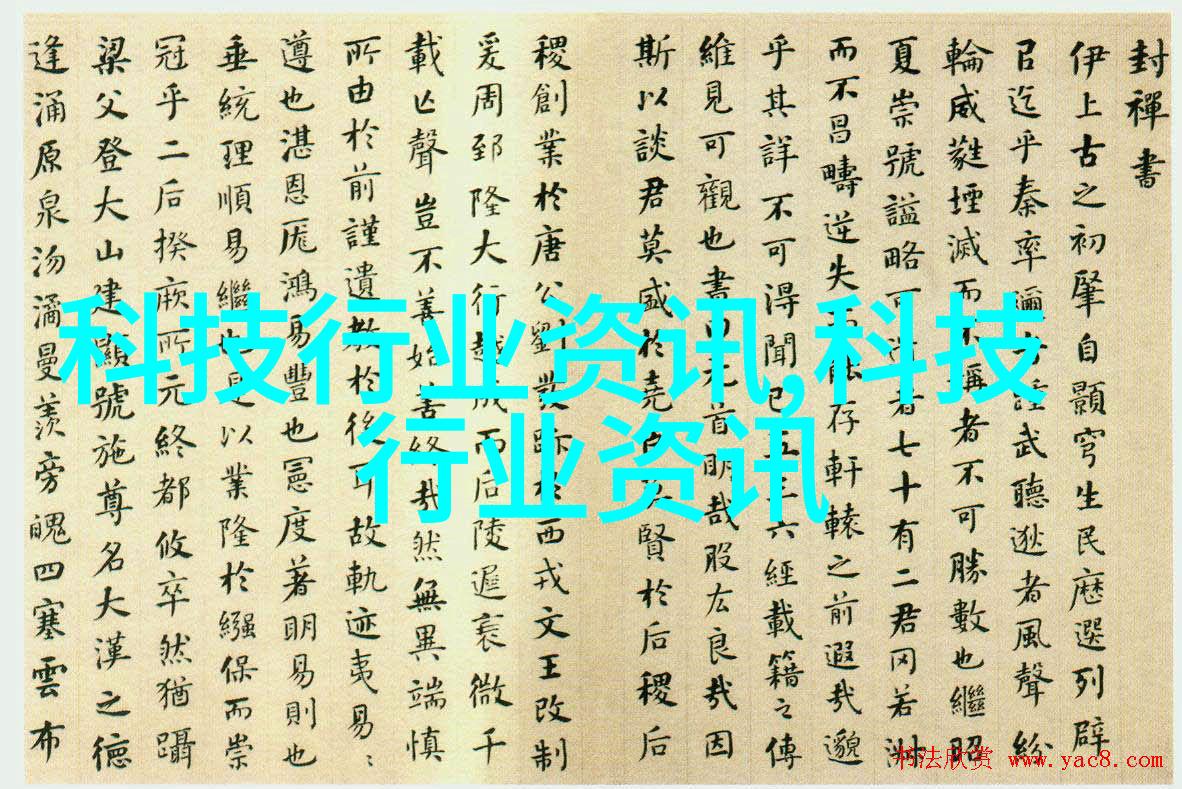 封禪書
伊上古之初肇自顥穹生民歷選列辟
㠯迄乎秦率邇者踵武聽逖者風聲紛
輪威蕤堙滅而不稱者不可勝數也繼昭
夏崇號謚略可道者七十有二君罔若淑
而不昌疇逆失而能存軒轅之前遐哉邈
乎其詳不可得聞已五三六經載籍之傳
維見可觀也書曰元首明哉股厷良哉因
斯以談君莫盛於堯臣莫賢於后稷后
稷創業於唐公劉發跡於西戎文王改制
爰周郅隆大行越成而后陵遲衰微千
載亡聲豈不善始善終哉然無異端慎
所由於前謹遺教於後耳故軌迹夷易:
遵也湛恩厖鴻易豐也憲度著明易則也
垂統理順易繼也是以業隆於繈保而崇
冠乎二后揆厥所元終都攸卒然猶躡
梁父登大山建顯號施尊名大漢之德
逢涌原泉沕潏曼羨旁魄四塞雲布
科技行业资讯,科技
行业资讯
书法欣赏 www.yac8.com